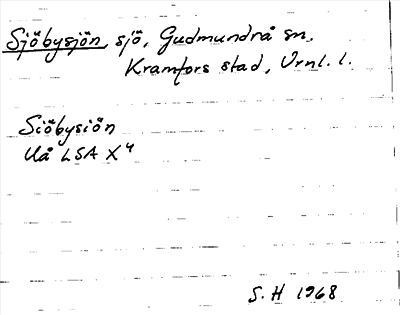 Sjöbysjön, sjö, Gudmundrå sn,
Kramfors stad, Vrnl. l.
Siöbysiön
Uå LSA X 4
S.H 1968